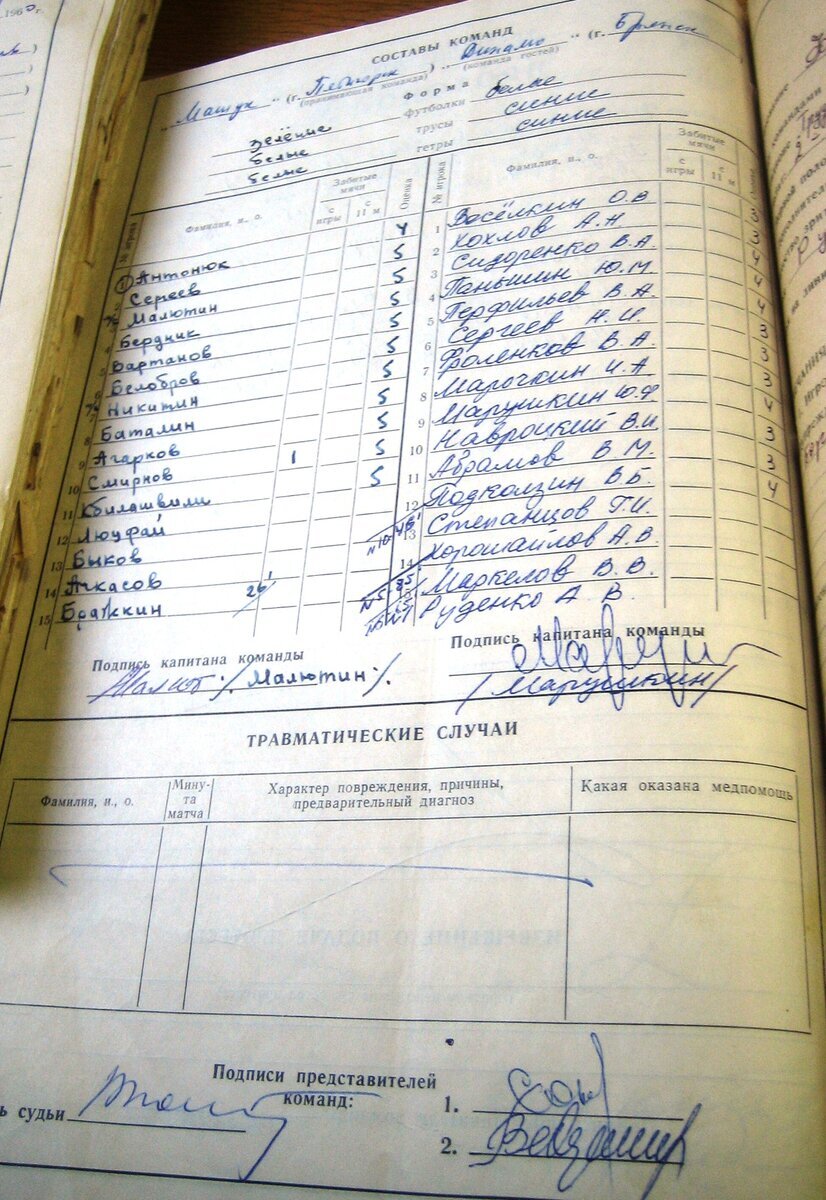 196
СОСТАВЫ КОМАНД
„Машук“ (г. Пятигорск) „Динамо“ (г. Брянск
(принимающая команда) (команда гостей)
Форма
зелёные футболки белые
белые трусы синие
белые гетры синие
№ игрока Фамилия, и., о. Забитые мячи с игры с 11 м Оценка № игрока Фамилия, и., о. Забитые мячи с игры с 11 м
1 Антонюк 4 1 Восёлкин О.В 3
Сергеев 5 2 Хохлов А.Н 3
Малютин 5 3 Сидоренко В.А 4
Бердник 5 4 Паньшин Ю.М. 4
Вартанов 5 5 Перфильев В.А. 4
Белобров 5 6 Сергеев Н.И. 3
Никитин 5 7 Фроленков В.А. 3
8 Баталин 5 8 Марочкин И.А 3
9 Агарков 1 5 9 Марушкин Ю.Ф 4
10 Смирнов 5 10 Навроцкий В.И 3
11 Квилашвили 11 Абрамов В.М. 3
12 Люуфай 12 Подколзин В.Б. 4
Быков 13 Степанцов Г.И.
14 Ачкасов 14 Хорошайлов А.В.
15 Бражкин 26' 15 Маркелов В.В.
Руденко А.В.
Подпись капитана команды Подпись капитана команды
/Малютин/ /Марушкин/
ТРАВМАТИЧЕСКИЕ СЛУЧАИ
Фамилия, и., о. Минута матча Характер повреждения, причины, предварительный диагноз Какая оказана медпомощь
Подписи представителей
команд:
ь судьи 1.
2.